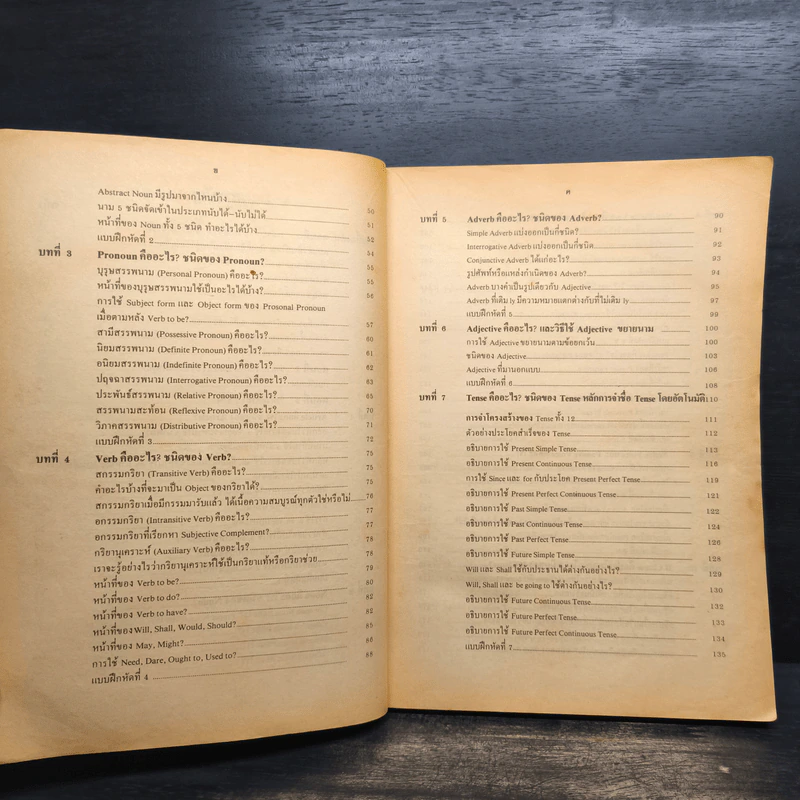 ข
Abstract Noun มีรูปมาจากไหนบ้าง
นาม 5 ชนิดจัดเข้าในประเภทนับได้-นับไม่ได้ 50
หน้าที่ของ Noun ทั้ง 5 ชนิด ทำอะไรได้บ้าง 51
แบบฝึกหัดที่ 2 52
บทที่ 3 Pronoun คืออะไร? ชนิดของ Pronoun? 54
บุรุษสรรพนาม (Personal Pronoun) คืออะไร? 55
หน้าที่ของบุรุษสรรพนามใช้เป็นอะไรได้บ้าง? 55
การใช้ Subject form และ Object form ของ Prosonal Pronoun 56
เมื่อตามหลัง Verb to be?
สามีสรรพนาม (Possessive Pronoun) คืออะไร? 57
นิยมสรรพนาม (Definite Pronoun) คืออะไร? 60
อนิยมสรรพนาม (Indefinite Pronoun) คืออะไร? 61
ปฤจฉาสรรพนาม (Interrogative Pronoun) คืออะไร? 62
ประพันธ์สรรพนาม (Relative Pronoun) คืออะไร? 65
สรรพนามสะท้อน (Reflexive Pronoun) คืออะไร? 70
วิภาคสรรพนาม (Distributive Pronoun) คืออะไร? 71
แบบฝึกหัดที่ 3 72
บทที่ 4 Verb คืออะไร? ชนิดของ Verb? 75
สกรรมกริยา (Transitive Verb) คืออะไร? 75
คำอะไรบ้างที่จะมาเป็น Object ของกริยาได้? 75
สกรรมกริยาเมื่อมีกรรมมารับแล้ว ได้เนื้อความสมบูรณ์ทุกตัวใช่หรือไม่ 76
อกรรมกริยา (Intransitive Verb) คืออะไร? 77
อกรรมกริยาที่เรียกหา Subjective Complement? 77
กริยานุเคราะห์ (Auxiliary Verb) คืออะไร? 78
เราจะรู้อย่างไรว่ากริยานุเคราะห์ใช้เป็นกริยาแท้หรือกริยาช่วย 78
หน้าที่ของ Verb to be? 80
หน้าที่ของ Verb to do? 82
หน้าที่ของ Verb to have? 82
หน้าที่ของ Will, Shall, Would, Should? 85
หน้าที่ของ May, Might? 86
การใช้ Need, Dare, Ought to, Used to? 88
แบบฝึกหัดที่ 4
ค
บทที่ 5 Adverb คืออะไร? ชนิดของ Adverb? 90
Simple Adverb แบ่งออกเป็นกี่ชนิด? 91
Interrogative Adverb แบ่งออกเป็นกี่ชนิด 92
Conjunctive Adverb ได้แก่อะไร? 93
รูปศัพท์หรือแหล่งกำเนิดของ Adverb? 94
Adverb บางคำเป็นรูปเดียวกับ Adjective 95
Adverb ที่เติม ly มีความหมายแตกต่างกับที่ไม่เติม ly 97
แบบฝึกหัดที่ 5 99
บทที่ 6 Adjective คืออะไร? และวิธีใช้ Adjective ขยายนาม 100
การใช้ Adjective ขยายนามตามข้อยกเว้น 100
ชนิดของ Adjective 103
Adjective ที่มานอกแบบ 106
แบบฝึกหัดที่ 6 108
บทที่ 7 Tense คืออะไร? ชนิดของ Tense หลักการจำชื่อ Tense โดยอัตโนมัติ 110
การจำโครงสร้างของ Tense ทั้ง 12 111
ตัวอย่างประโยคสำเร็จของ Tense 112
อธิบายการใช้ Present Simple Tense 113
อธิบายการใช้ Present Continuous Tense 116
การใช้ Since และ for กับประโยค Present Perfect Tense 119
อธิบายการใช้ Present Perfect Coninuous Tense 121
อธิบายการใช้ Past Simple Tense 122
อธิบายการใช้ Past Continuous Tense 124
อธิบายการใช้ Past Perfect Tense 126
อธิบายการใช้ Future Simple Tense 128
Will และ Shall ใช้กับประธานได้ต่างกันอย่างไร? 129
Will, Shall และ be going to ใช้ต่างกันอย่างไร? 130
อธิบายการใช้ Future Continuous Tense 132
อธิบายการใช้ Future Perfect Tense 133
อธิบายการใช้ Future Perfect Continuous Tense 134
แบบฝึกหัดที่ 7 135